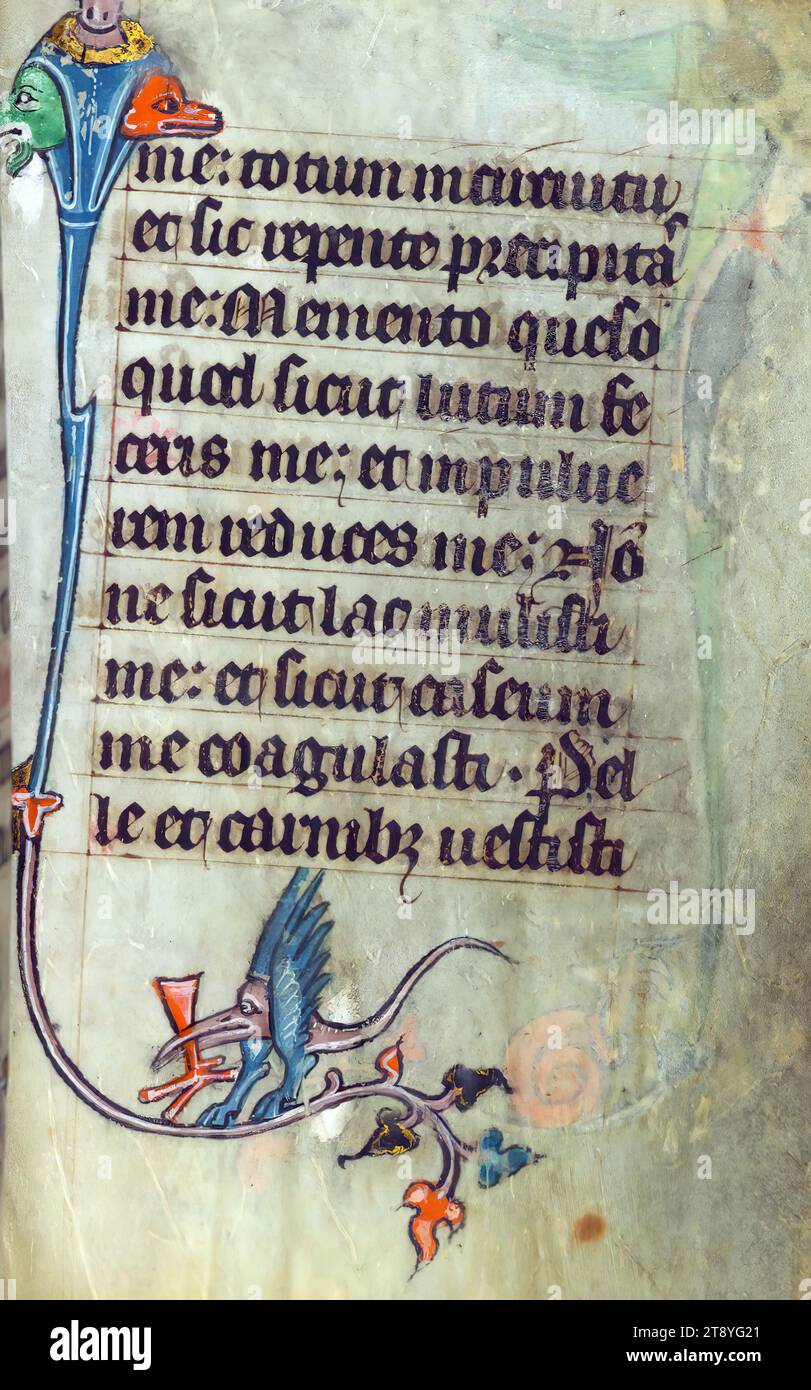 me: totum in circuitu
et sic repente precipitas
me: Memento queso
quod sicut lutum fe
ceris me: et in pulue
rem reduces me: No
ne sicut lac mulsisti
me: et sicut caseum
me coagulasti. Pel
le et carnibꝫ uestisti
alamy
alamy
alamy
Image ID: 2T8YG21
www.alamy.com